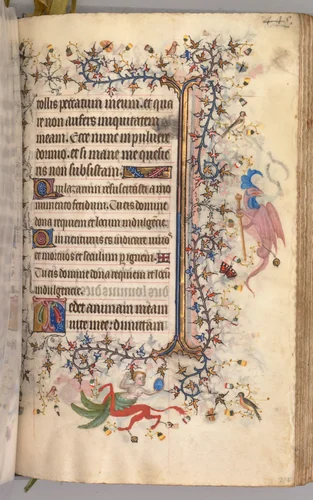 tollis peccatum meum. et qua
re non aufers iniquitatem
meam. Ecce nunc in pulvere
dormio. et si mane me quesie
ris non subsistam.
Qui lazarum resuscitasti a mo
numento fetidum. Tu eis domine
dona requiem et locum indulgencie.
Qui venturus es iudicare vivos
et mortuos et seculum per ignem.
Tu eis domine dona requiem et locum
indulgencie.
Tedet animam meam
vite mee: dimittam